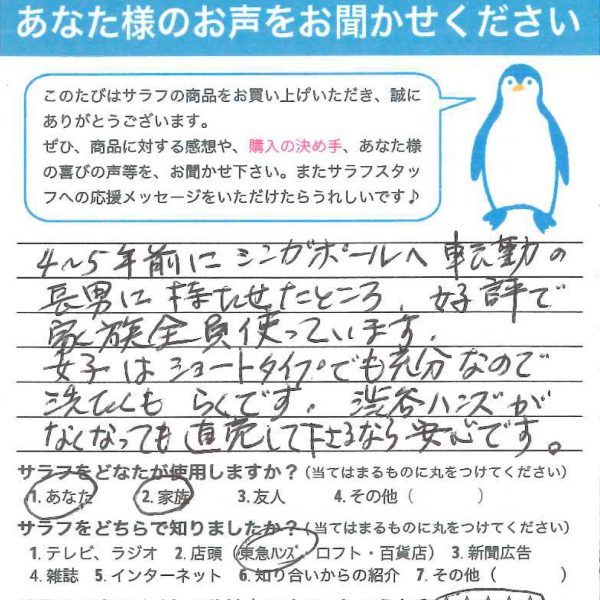 あなた様のお声をお聞かせください
このたびはサラフの商品をお買い上げいただき、誠に
ありがとうございます。
ぜひ、商品に対する感想や、購入の決め手、あなた様
の喜びの声等を、お聞かせ下さい。またサラフスタッ
フへの応援メッセージをいただけたらうれしいです♪
4〜5年前にシンガポールへ転勤の
長男に持たせたところ、好評で
家族全員使っています.
女子はショートタイプでも充分なので
洗たくもらくです. 渋谷ハンズが
なくなっても直売して下さるなら安心です。
サラフをどなたが使用しますか？(当てはまるものに丸をつけてください)
1. あなた 2. 家族 3. 友人 4. その他（ ）
サラフをどちらで知りましたか？(当てはまるものに丸をつけてください)
1. テレビ、ラジオ 2. 店頭（東急ハンズ・ロフト・百貨店） 3. 新聞広告
4. 雑誌 5. インターネット 6. 知り合いからの紹介 7. その他（ ）